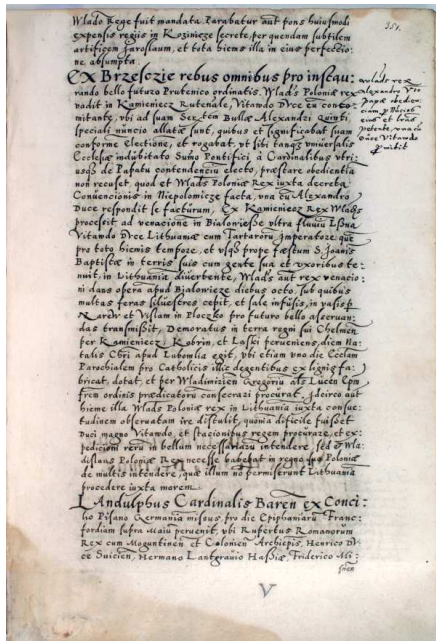 Wlado Rege fuit mandata. Parabatur aut pons huiusmodi
expensis regiis in Kozinieze secrete, per quendam subtilem
artificem Jaroslaum, et tota hiems illa in eius perfectio:
ne absumpta.
351.
EX Brzesczie rebus omnibus pro instau:
rando bello futuro Prutenico ordinatis. Wlads Poloniæ rex
vadit in Kamieniecz Rutenale, Vitawdo Duce eum conco:
mitante, vbi ad suam Sertem Bullæ Alexandri Quinti
speciali nuncio allatæ sunt, quibus et significabat suam
conforme Electione, et rogabat, vt sibi tanq vniuersalis
Ecclesiæ indubitato Sumo Pontifici à Cardinalibus vtri:
usq de Papatu contendenciu electo, præstare obedientia
non recuset, quod et Wlads Poloniæ Rex iuxta decreta
Conuencionis in Niepolomicze facta, vna cu Alexandro
Duce respondit se facturum, Ex Kamieniecz Rex Wlads
processit ad venacione in Bialowiesse vltra fluuiu
Vitawdo Duce Lithuaniæ cum Tartaroru imperatore que
pro toto hiemis tempore, et vsq prope fæstum S. Joanis
Baptistæ in terris suis cum gente sua et vxoribus te:
nuit, in Lithuania diuertente, Wlads aut rex venacio:
ni dans opera apud Bialowieze diebus octo, sub quibus
multas feras siluestres cepit, et sale infusis, in vasis p
Narew et Vislam in Ploczko pro futuro bello asseruan:
das transmisit, Demoratus in terra regni sui Chelmen
per Kamieniecz Kobrin, et Laski perueniens, diem Na:
talis Chri apud Lubomlia egit, vbi etiam vno die Ecclam
Parochialem pro Catholicis illic degentibus ex lignis fa:
bricat, dotat, et per Wladimirien Gregoriu als Luceu Epm
frem ordinis prædicatoru consecrari procurat. Jdcirco aut
hieme illa Wlads Poloniæ rex in Lithuania iuxta consue:
tudinem obseruatam ire distulit, quonia dificile fuisset
Duci magno Vitawdo, et stacionibus regem procurare, et ex:
pedicioni reru in bellum necessariaru intendere sed Wla:
dislaus Poloniæ Rex necesse habebat in regno suo Poloniæ
de multis intendere, quæ illum no permiserunt Lithuania
procedere iuxta morem.
LAndulphus Cardinalis Baren ex Conci:
lio Pisano Germania missus, pro die Epiphaniaru Franc:
fordium supra Maiu peruenit, vbi Rupertus Romanorum
Rex cum Moguntinen et Colonien Archiepis, Henrico Du:
ce Suicien, Hermano Lantgrauio Hassiæ, Friderico Mi:
snen
V